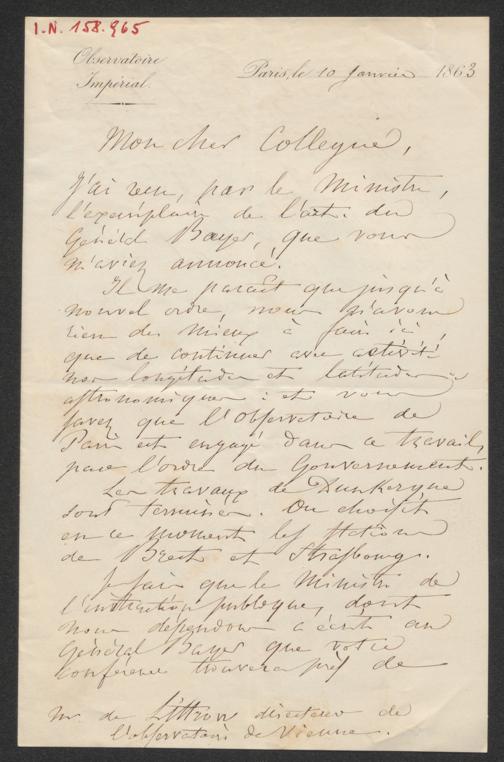 I.N. 158.965
Observatoire
Impérial.
Paris, le 10 Janvier 1863
Mon cher Collègue,
J'ai reçu, par le Ministre,
l'exemplaire de l'acte du
Général Bayer, que vous
m'aviez annoncé.
Il me paraît que jusqu'à
nouvel ordre, nous n'avons
rien de mieux à faire ici,
que de continuer avec activité
nos longitudes et latitudes
astronomiques : et vous
savez que l'Observatoire de
Paris est engagé dans ce travail,
par l'ordre du Gouvernement.
Les travaux de Dunkerque
sont terminés. On choisit
en ce moment les stations
de Brest et Strasbourg.
Je sais que le Ministre de
l'instruction publique, dont
nous dépendons a écrit au
Général Bayer que votre
Conférence trouvera près de
Mr. de Littrow directeur de
l'observatoire de Vienne.